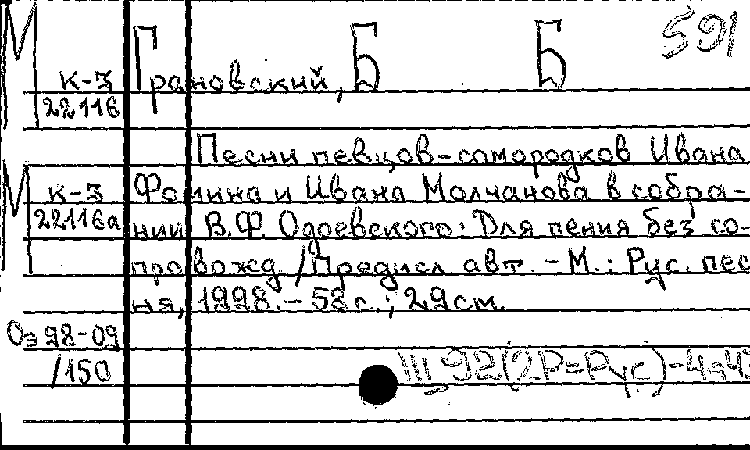 М 591
к-3 Грановский, Б Б
22116
Песни певцов-самородков Ивана
М к-3 Фомина и Ивана Молчанова в собра-
22116а нии В.Ф. Одоевского: Для пения без со-
провожд. /Предисл авт. - М.: Рус. пес
ня, 1998. - 58 с.; 29 см.
Оз 98-09
/150 Ш 92(2Р=Рус)-4